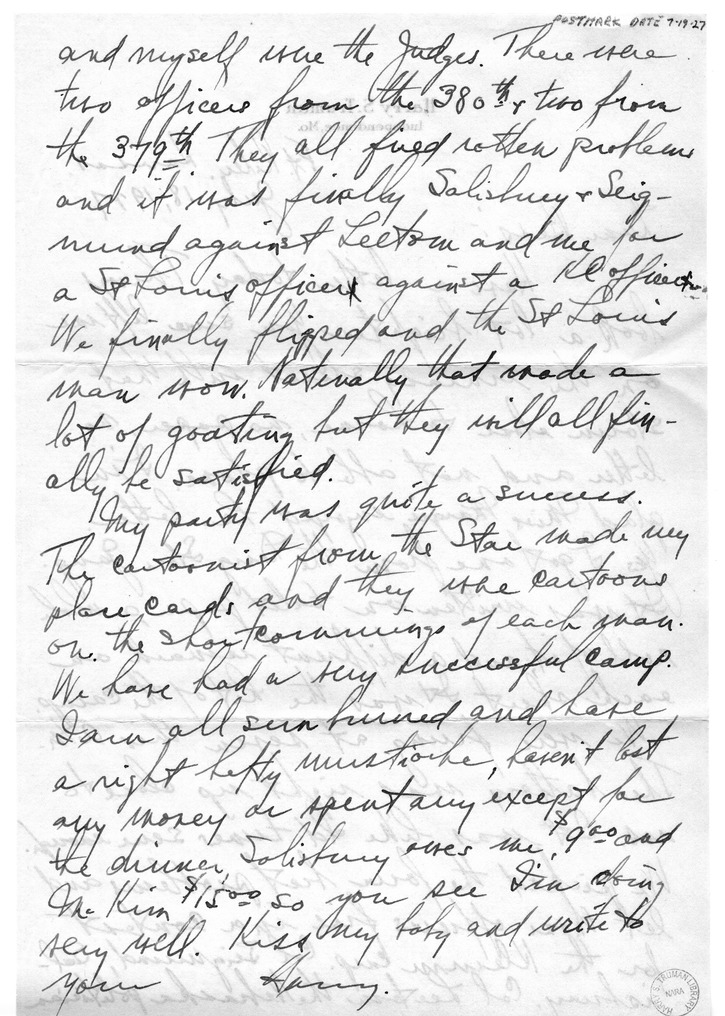 POSTMARK DATE 7-19-27
and myself were the Judges. There were
two officers from the 380th & two from
the 379th. They all fired rotten problems
and it was finally Salisbury & Seig-
mund against Leetom and me for
a St Louis officer against a KC officer
We finally flipped and the St Louis
man won. Naturally that made a
lot of goating but they will all fin-
ally be satisfied.
My party was quite a success.
The cartoonist from the Star made my
place cards and they were cartoons
on the shortcommings of each man.
We have had a very successful camp.
I am all sun burned and have
a right hefty mustache, haven't lost
any money or spent any except for
the dinner, Salisbury owes me $9.00 and
McKim $15.00 so you see I'm doing
very well. Kiss my baby and write to
your Harry.
HARRY S. TRUMAN LIBRARY
NARA